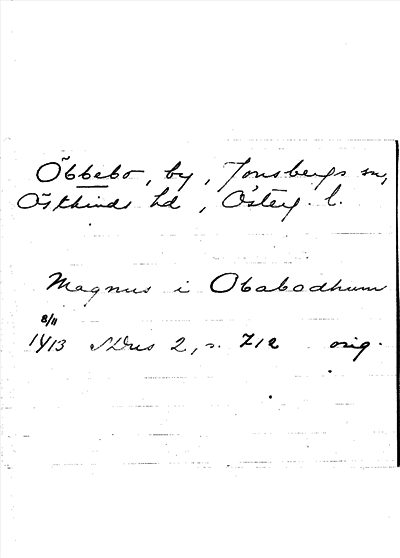 Öbbebo, by, Jonsbergs sn,
Östkinds hd, Österg. l.
Magnus i Obabodhum
8/11
1413 SDns 2, s. 712 orig.